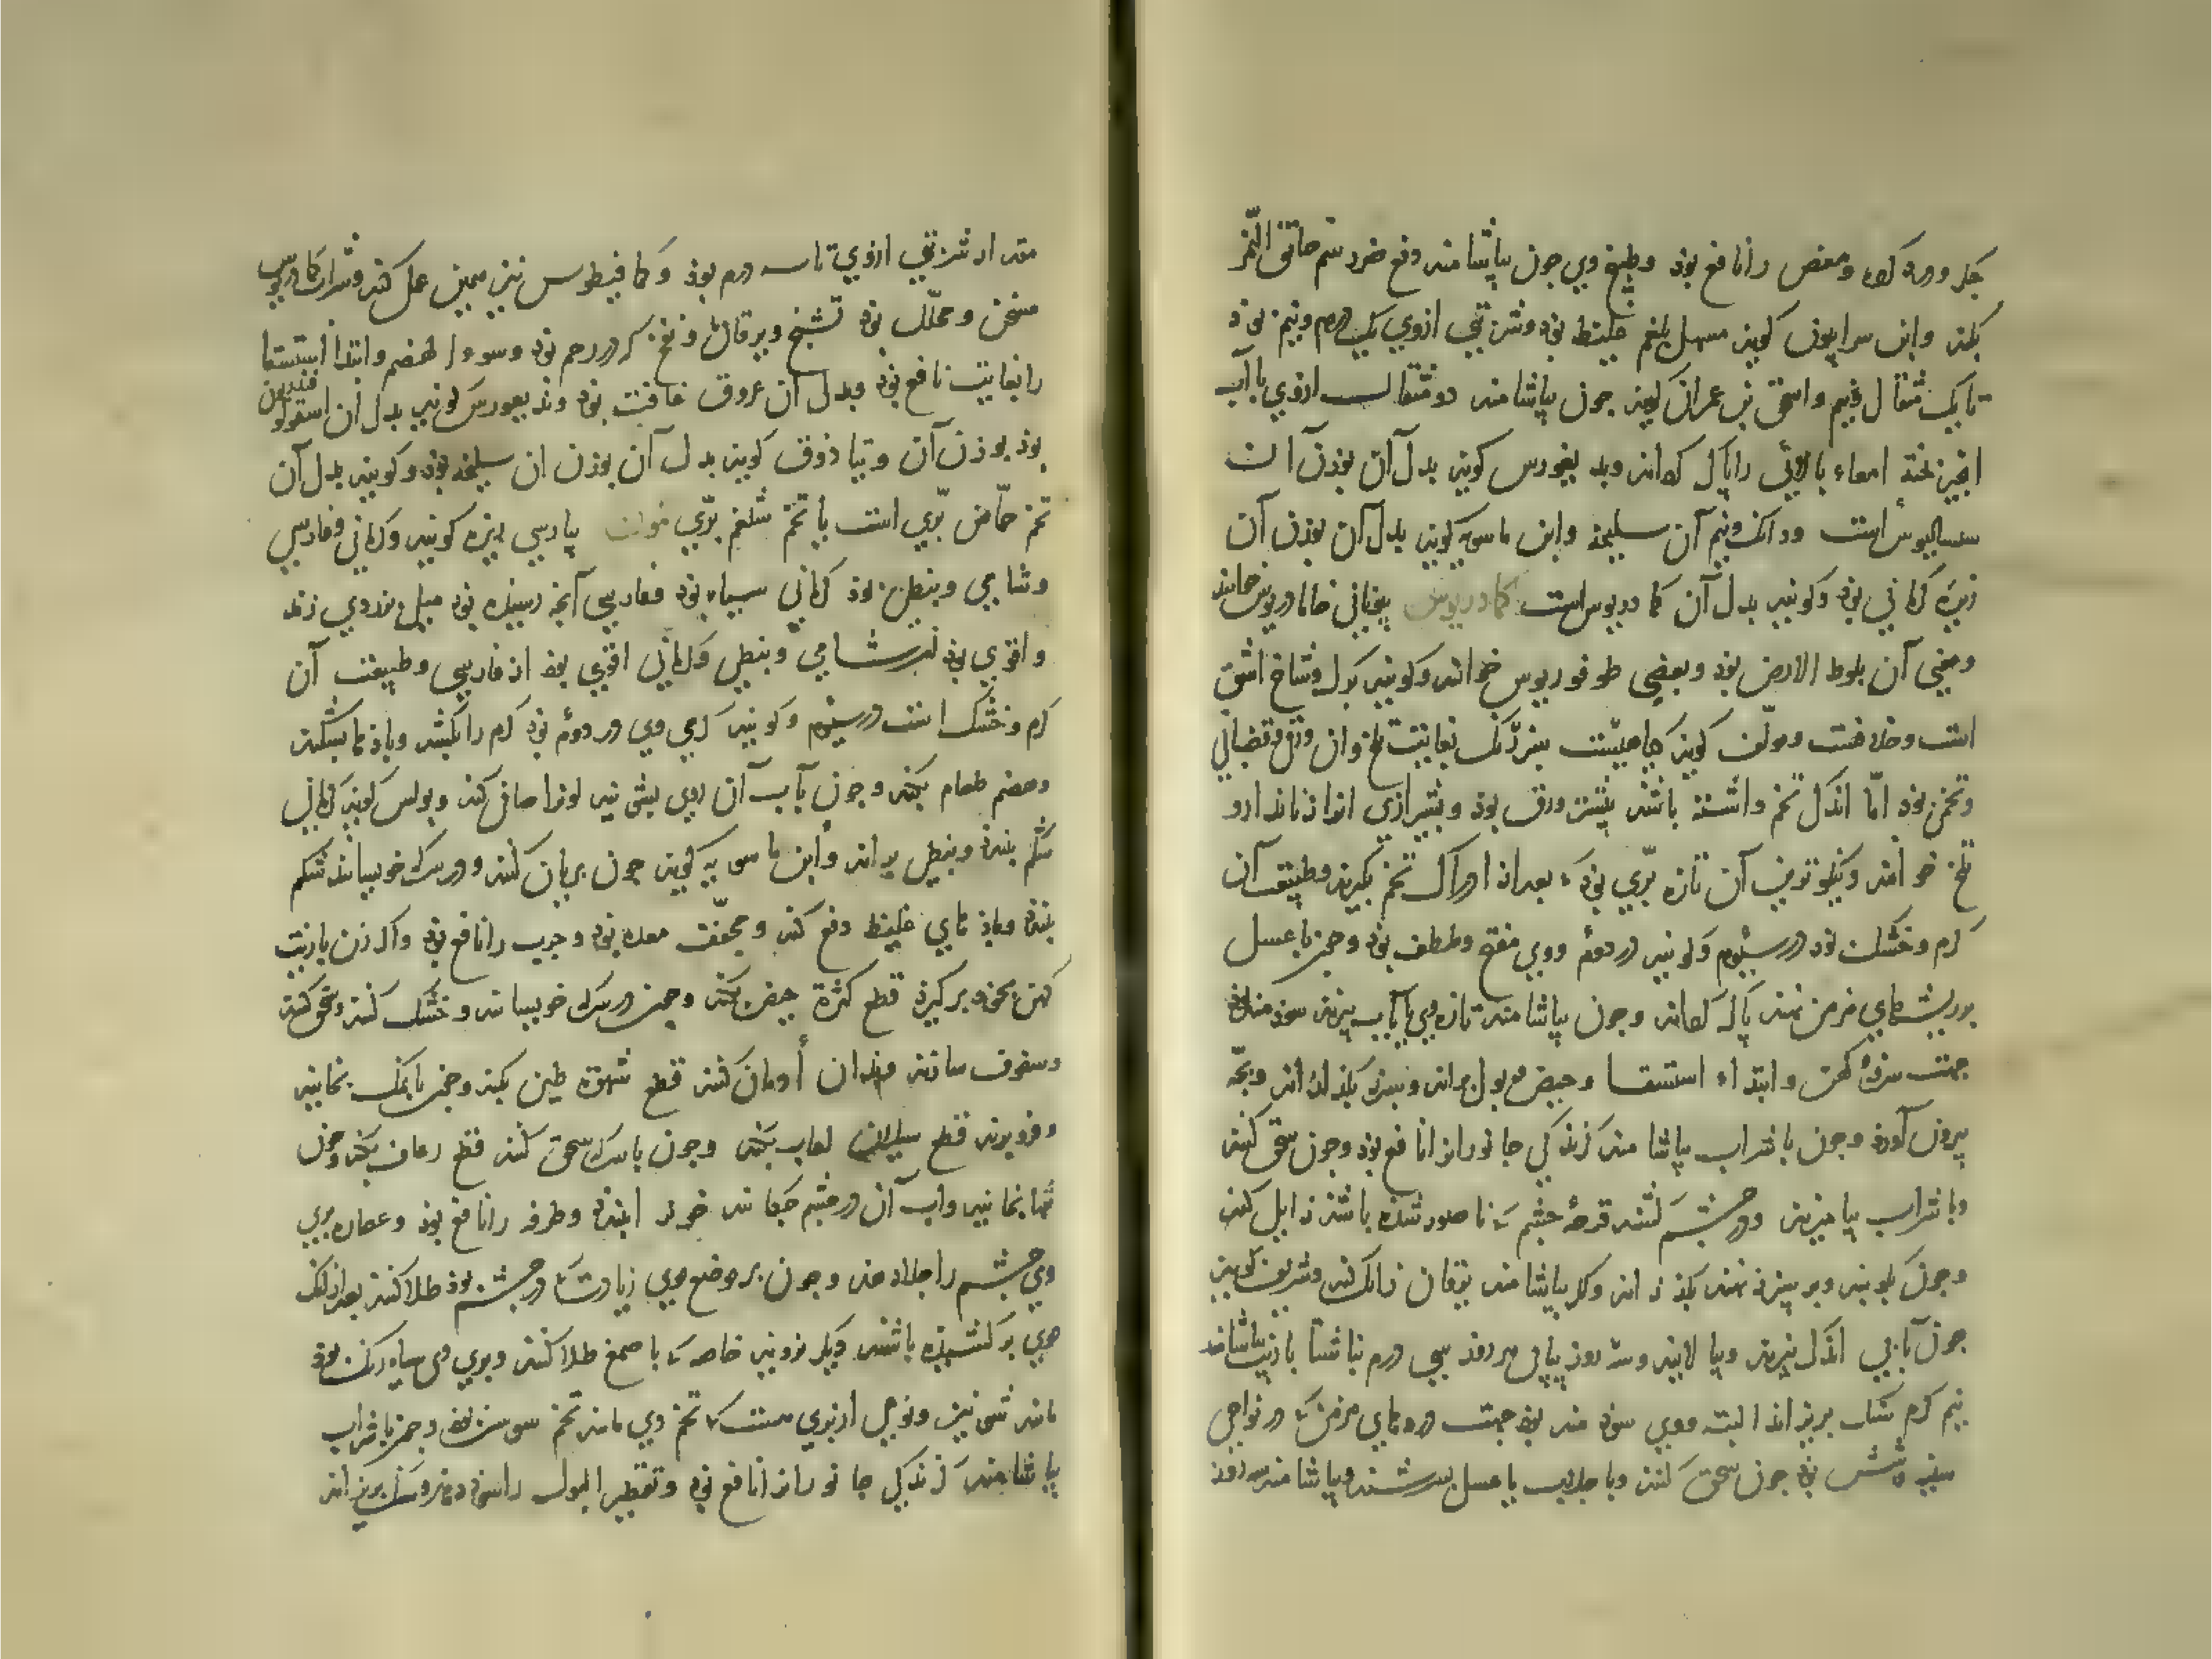 جگر و درد گرده و مغص را نافع بود و طبیخ وی چون بیاشامند دفع ضرر سم خانق النمر
بکند و ابن سرابیون گوید مسهل بلغم غلیظ بود و شربتی ازوی یک درم و نیم بود
تا یک مثقال و نیم و اسحق بن عمران گوید چون بیاشامند دو مثقال ازوی با آب
انجیر پخته امعاء بالایی را پاک گرداند و بدیغورس گوید بدل آن بوزن آن
سسالیوس است و دانک و نیم آن سلیخه و ابن ماسویه گوید بدل آن بوزن آن
زیره کرمانی بود و گویند بدل آن کمادریوس است کمادریوس بیونانی خامادریوس خوانند
و معنی آن بلوط الارض بود و بعضی طوقوریوس خوانند و گویند
است و خلافست و مؤلف گوید بغایت تلخ و آن
و تخمش بود امّا اندک تخم داشته باشد بیشتر ورق بود و بشیرازی انرا
تلخ خوانند و نیکوترین آن تازه برّی بود که بعد از ادراک تخم بگیرند و طبیعت آن
گرم و خشک بود در سیوم و گویند در دوم و وی مفتح و ملطف بود و چون با عسل
بر ریشهای مزمن نهند پاک گرداند و چون بیاشامند تازه وی با آب بپزند سود مند بود
جهت سرفه کهن و ابتداء استسقا و حیض و بول براند و سپرز بگدازاند و بچه
بیرون آورد و چون با شراب بیاشامند گزندگی جانورانرا نافع بود و چون سحق کنند
و با شراب بیامیزند و در چشم کشند قرحه چشم که ناصور شده باشد زایل کند
و چون بکوبند و بر سپرز نهند بگدازاند و گر بیاشامند یرقان زایل کند و شریف گوید
چون آبی اندک بپزند و بپالایند و سه روز پیاپی هر روز سی درم ناشتا با زیت بیاشامند
نیم گرم سنگ بریزاند البته و وی سود مند بود جهت دردهای مزمن که در نواحی
سینه و شش بود چون سحق کنند و با جلاب یا عسل بسرشند و بیاشامند سه روز
مقدار شربتی ازوی تا سه درم بود و کمافیطوس نیز همین عمل کند و شراب کمادریوس
مسخن و محلل بود تشنج و یرقان و نفخ که در رحم بود و سوء الهضم و ابتداء استسقا
را بغایت نافع بود و بدل آن عروق غافت بود و بدیغورس گوید بدل آن اسقولوقندریون
بود بوزن آن و تیاذوق گوید بدل آن بوزن آن سلیخه بود و گویند بدل آن
تخم حمّاض برّی است یا تخم شلغم برّی کمون بپارسی زیره گویند و کرمانی و فارسی
و شامی و نبطی بود کرمانی سیاه بود و فارسی آنچه رسیده بود میل بزردی زند
و اقوی بود از شامی و نبطی و کرمانی اقوی بود از فارسی و طبیعت آن
گرم و خشک است در سیوم و گویند گرمی وی در دوم بود کرم را بکشد و بادها بشکند
و هضم طعام بکند و چون بآب آن روی بشویند لونرا صافی کند و بولس گوید کرمانی
شکم ببندد و نبطی براند و ابن ماسویه گوید چون بریان کنند و در سرکه خویسانند شکم
ببندد و بادهای غلیظ دفع کند و مجفّف معده بود و جرب را نافع بود و اگر زن با زیت
کهن بخود برگیرد قطع کثرة حیض بکند و چون در سرکه خویسانند و خشک کنند و سحق کنند
و سفوف سازند و بدان ادمان کنند قطع شهوة طین بکند و چون با نمک بخایند
و فرو برند قطع سیلان لعاب بکند و چون با سرکه سحق کنند قطع رعاف بکند و چون
تنها بخایند و آب آن در چشم چکانند خون ببندد و طرفه را نافع بود و عصاره بری
وی چشم را جلا دهد و چون بر موضع موی زیادت که در چشم بود طلا کنند بعد از آنک
موی برکشیده باشند دیگر نروید خاصه که با صمغ طلا کنند و بری وی سیاه رنگ بود
مانند شونیز و نوعی از بری هست که تخم وی مانند تخم سوسن بود و چون با شراب
بیاشامند گزندگی جانورانرا نافع بود و تقطیر البول را سود دهد و سنگ بریزاند